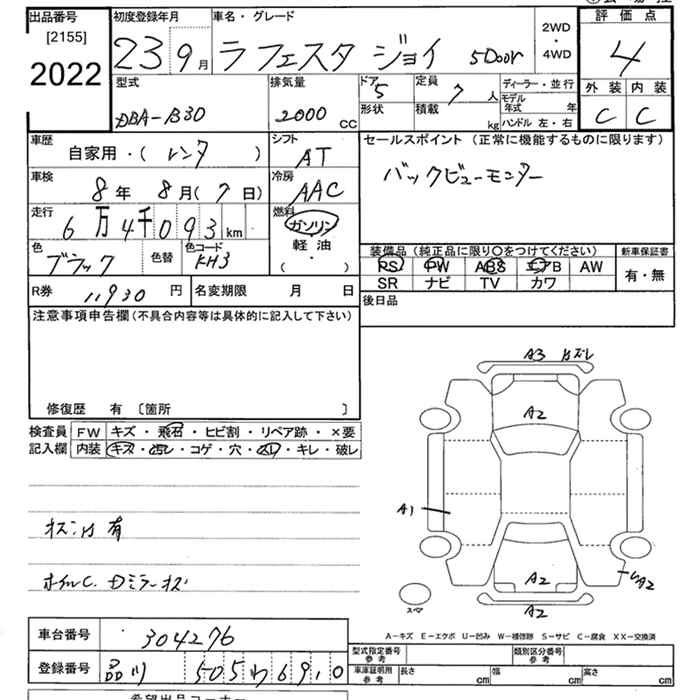 出品番号 初度登録年月 車名・グレード 評価点
[2155] 2022
23 9月 ラフェスタ ジョイ 5Door 2WD・4WD 4
型式 排気量 ドア 5 定員 7人 ディーラー・並行 外装 内装
DBA-B30 2000 CC 形状 積載 kg モデル年式 年 ハンドル 左・右 C C
車歴 自家用・( レンタ ) シフト AT セールスポイント (正常に機能するものに限ります)
車検 8年 8月(7日) 冷房 AAC バックビューモニター
走行 6万4千093km 燃料 ガソリン 軽油 ( ・ )
色 ブラック 色替 色コード KH3 装備品 (純正品に限り○をつけてください) 新車保証書
PS PW ABS エアB AW 有・無
SR ナビ TV カワ
R券 11,930円 名変期限 月 日 後日品
注意事項申告欄 (不具合内容等は具体的に記入して下さい)
修復歴 有 〔箇所 〕
検査員 FW キズ・飛石・ヒビ割・リペア跡・×要
記入欄 内装 キズ・凹レ・コゲ・穴・汚レ・キレ・破レ
A3 ズレ
A2
A1
有
ホイルC. ミラーキズ
A2
A2
A2
スマ
A-キズ E-エクボ U-凹み W-補修跡 S-サビ C-腐食 XX-交換済
車台番号 304276 型式指定番号 参考 類別区分番号 参考
登録番号 品川 505 わ 6910 車庫証明用 参考 長さ cm 幅 cm 高さ cm
希望出品コーナー